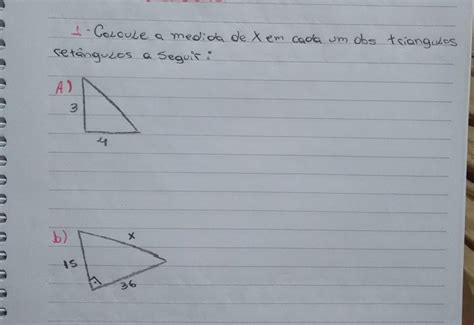 1-Calcule a medida de X em cada um dos triangulos
retângulos a seguir:
A)
3
4
b)
x
15
36